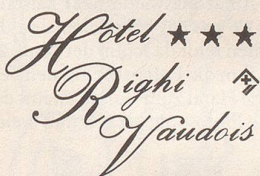 Hôtel ★★★
Righi
Vaudois